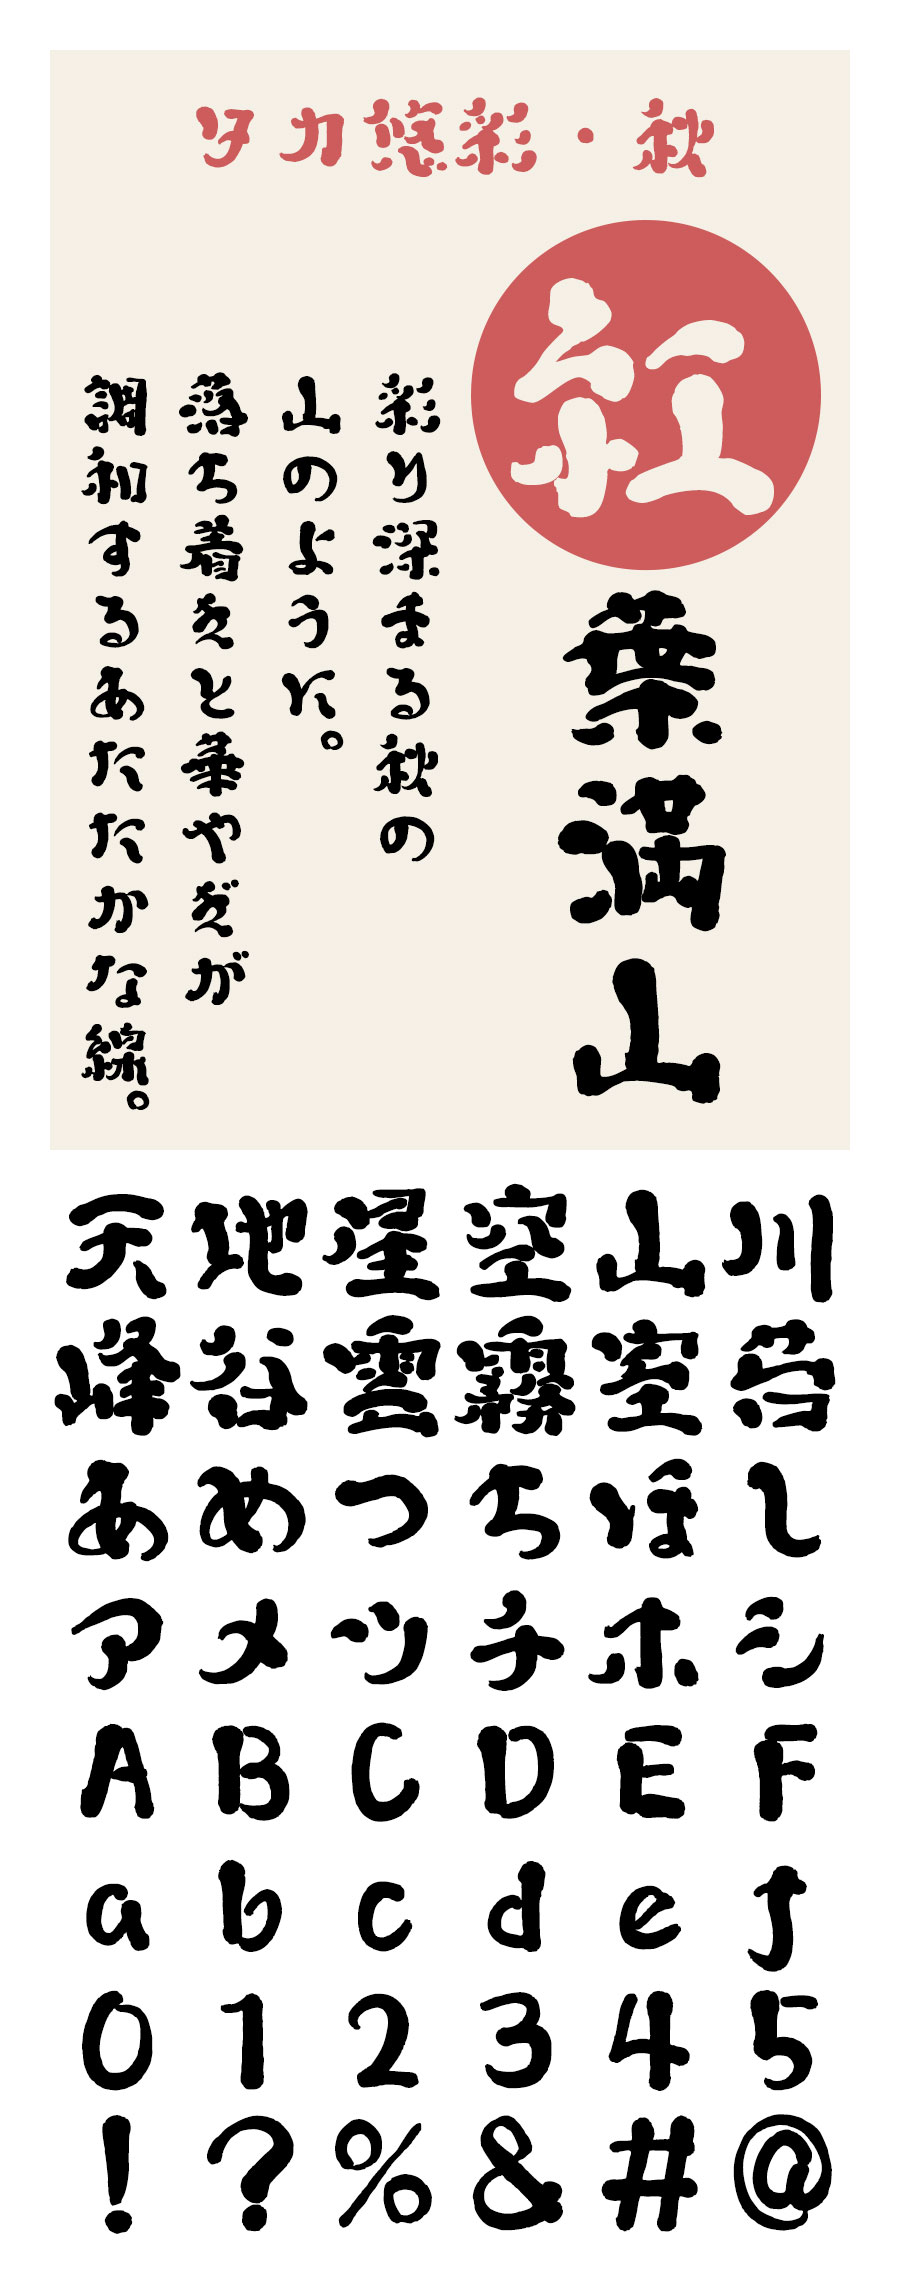 タカ悠彩・秋
紅葉満山
彩り深まる秋の
山のように。
落ち着きと華やぎが
調和するあたたかな線。
天地星空山川
峰谷雲霧室苔
あめつちほし
アメツチホシ
ABCDEF
abcdef
012345
!?%&#@